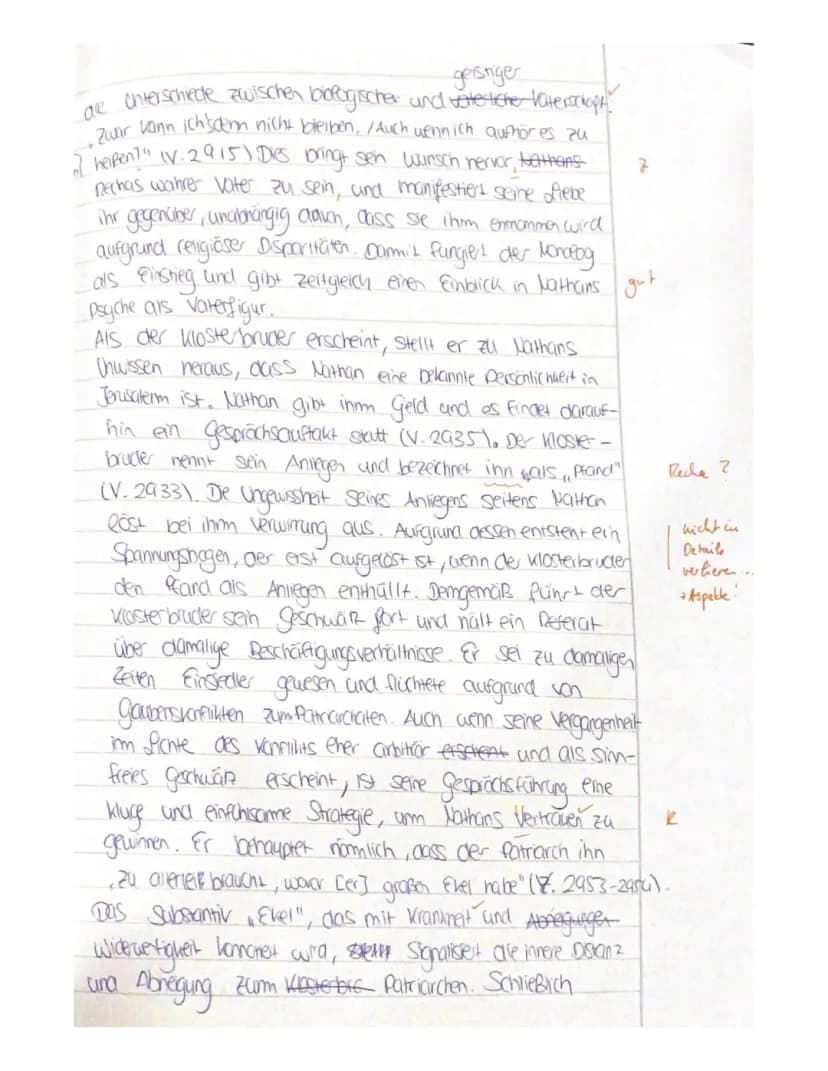 geistiger
die Unterschiede zwischen biologischer und väterlicher Vaterschaft.
„Zwar kann ich's denn nicht bleiben, / Auch wenn ich aufhör es zu
heißen?" (V. 2915) Dies bringt sein Wunsch hervor, Nathans
Z
Rechas wahrer Vater zu sein, und manifestiert seine Liebe
ihr gegenüber, unabhängig davon, dass sie ihm entnommen wird
aufgrund religiöser Disparitäten. Damit fungiert der Monolog
als Einstieg und gibt zeitgleich einen Einblick in Nathans
gut
Psyche als Vaterfigur.
Als der Klosterbruder erscheint, stellt er zu Nathans
Unwissen heraus, dass Nathan eine bekannte Persönlichkeit in
Jerusalem ist. Nathan gibt ihm Geld und es findet darauf-
hin ein Gesprächsauftakt statt (V. 2935). Der Kloster-
bruder nennt sein Anliegen und bezeichnet ihn als „Pfand"
Recha ?
(V. 2933). Die Ungewissheit seines Anliegens seitens Nathan
löst bei ihm Verwirrung aus. Aufgrund dessen entsteht ein
nicht in
Details
verlieren...
→ Aspekte!
Spannungsbogen, der erst aufgelöst ist, wenn der Klosterbruder
den Pfand als Anliegen enthüllt. Demgemäß führt der
Klosterbruder sein Geschwätz fort und hält ein Referat
über damalige Beschäftigungsverhältnisse. Er sei zu damaligen
Zeiten Einsiedler gewesen und flüchtete aufgrund von
Glaubenskonflikten zum Patriarchaten. Auch wenn seine Vergangenheit
im Lichte des Konflikts eher arbiträr erscheint und als sinn-
freies Geschwätz erscheint, ist seine Gesprächsführung eine
kluge und einfühlsame Strategie, um Nathans Vertrauen zu
R
gewinnen. Er behauptet nämlich, dass der Patriarch ihn
„zu allerlei braucht, wovor [er] großen Ekel habe" (Z. 2953-2954).
Das Substantiv „Ekel", das mit Krankheit und Abneigungen
Widerwertigkeit konnotiert wird, signalisiert die innere Distanz
und Abneigung zum Klosterbru Patriarchen. Schließlich